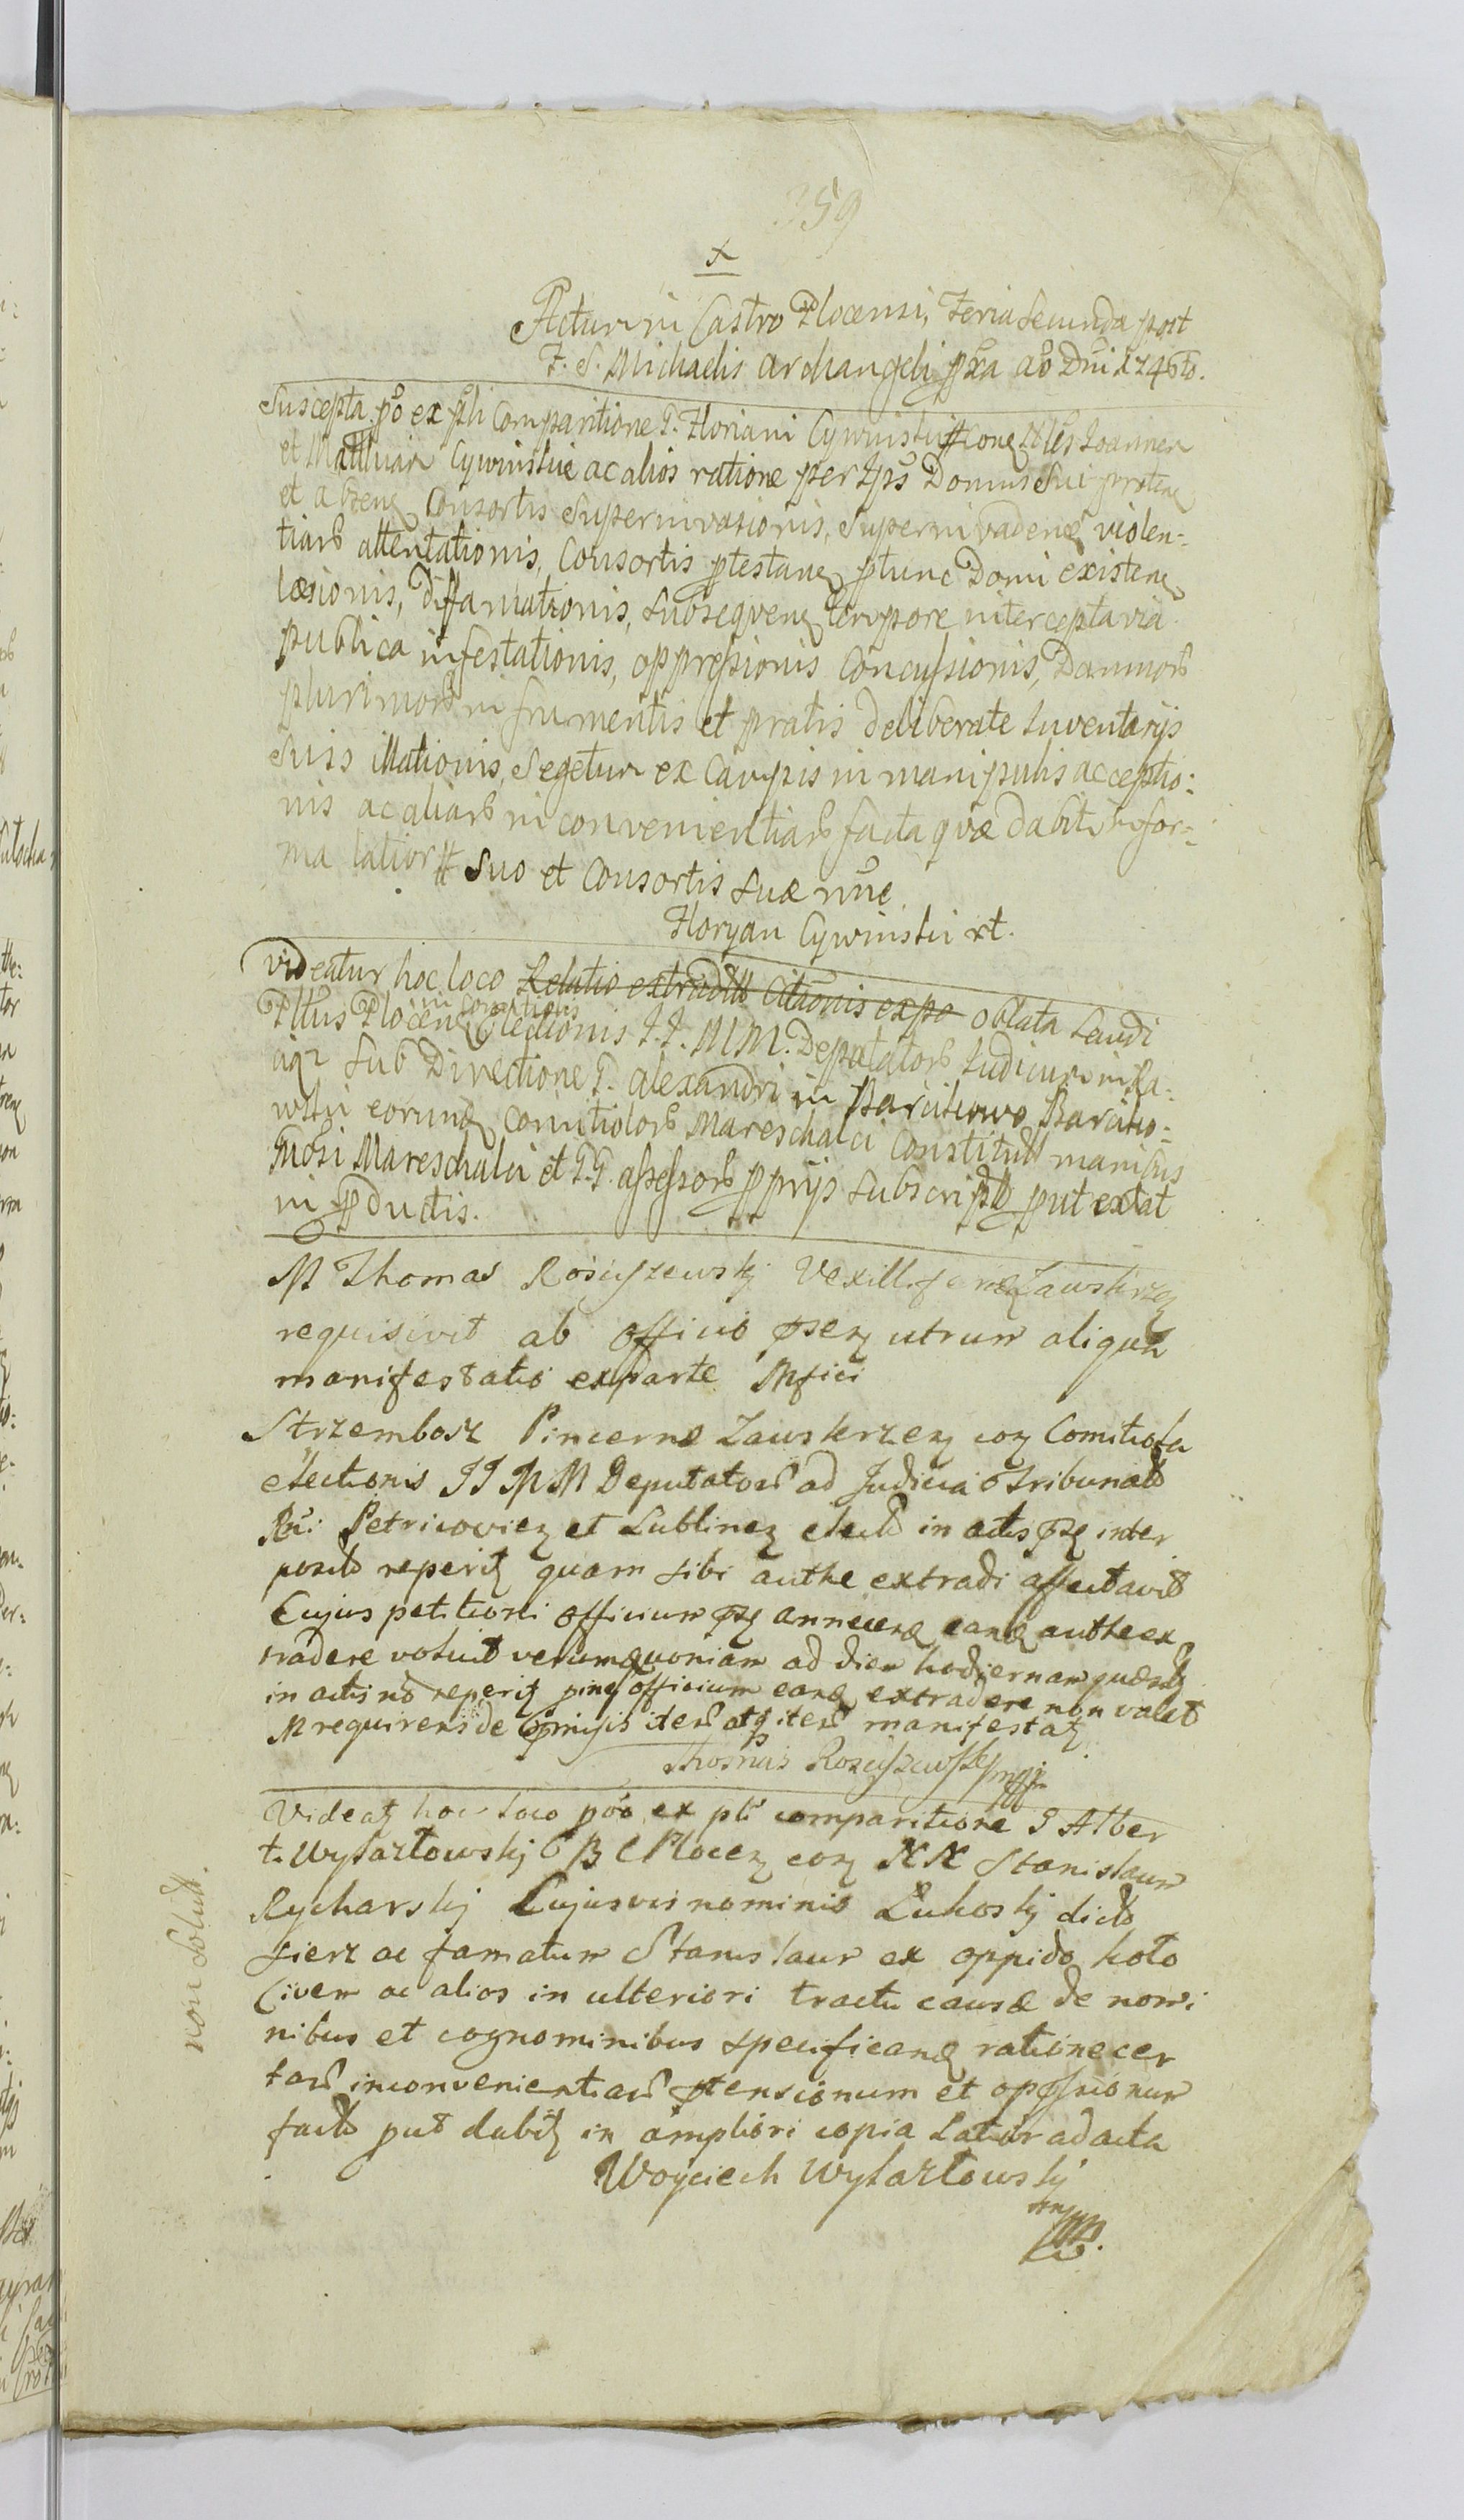 359
x
Actum in Castro Plocensi, Feria Secunda post
F. S. Michaelis Archangeli pxa ao Dni 1746to.
Suscepta po ex pli Comparitione G. Floriani Cywinski cone Nles Joannem
et Mathiam Cywinskie ac alios ratione per Ipos Domus Sui proten
et absen Consortis Superinvasionis, Superinvaden violen-:
tiarb attentationis, Consortis ptestan ptunc Domi existen
læsionis, Diffamationis, Subseqven tempore intercepta via
publica infestationis, oppressionis Concussionis, Damnorb
plurimorb in frumentis et pratis deliberate Inventarijs
Suis illationis, Segetum ex Campis in manipulis acceptio:
nis ac aliarb inconvenientiarb facta qvæ dabit in for:
ma latiori Suo et Consortis Suæ nne
Floryan Cywinski rt.
videatur hoc loco Relatio extradtt Citaonis expo oblata Laudi
Plttus Plocen in Comitiolis Electionis I.I. M.M. Deputatorb Judicum in Ra:
iq2 Sub Directione G. Alexandri in Barcikowo Barciko:
wski eorund Comitiolorb Mareschalci Constitutt manibus
Gnosi Mareschalci et G.G. assessorb pprijs Subscriptb put extat
in pductis.
M Thomas Rosciszewskj Vexillifer Zawskrzen
requisivit ab officio psen utrum aliqua
manifestatio ex parte Mfici
Strzembosz Pincernæ Zawskrzen con Comitiola
electionis II MM Deputatorb ad Judicia Tribunalb
Rni Petricovien et Lublinen electb in actis psn inter
positb reperit quam sibi authe extradi affectavit
Cujus petitioni officium psn annuen eand authe ex
tradere voluit verum quoniam ad diem hodiernam quæsit
in actis no reperit pine officium eand extradere non valet
M requirens de pmissis iterb atq iterb manifestat
Thomas Rosciszewski mpp
Videat hoc loco poo ex pli comparitione G Alber
t. Wylazłowskj B C Plocen con NN Stanislaum
Rycharskj Cujusvis nominis Łukoskj dictb
sierz ac famatum Stanislaum ex oppido koło
Civem ac alios in ulteriori tractu causæ de nomi
nibus et cognominibus specificand ratione cer
tarb inconvenientiarb ptensionum et oppssionum
factb put dabit in ampliori copia Latior ad acta
Woyciech Wylazłowskj
mpp
non Solutt.